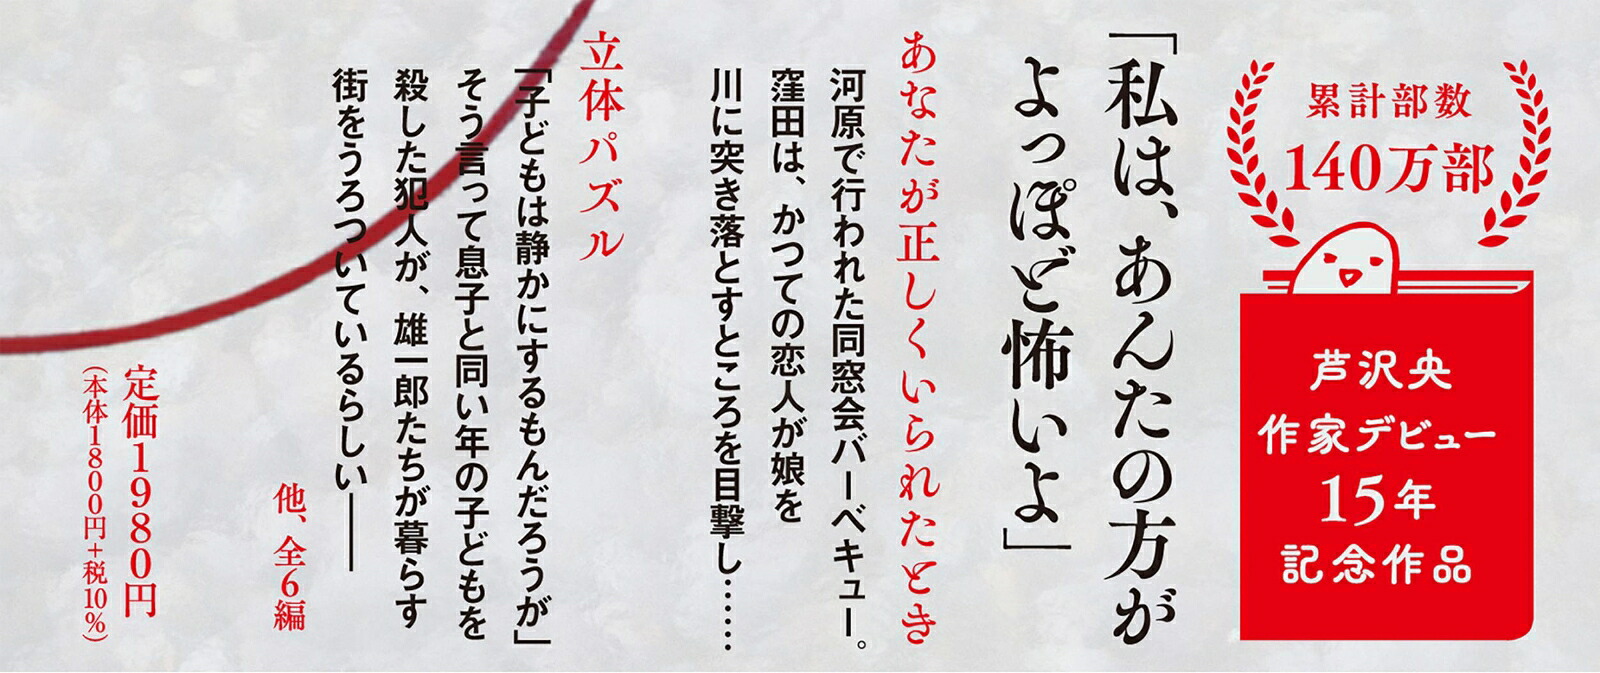 累計部数
140万部
芦沢央
作家デビュー
15年
記念作品
「私は、あんたの方が
よっぽど怖いよ」
あなたが正しくいられたとき
河原で行われた同窓会バーベキュー。
窪田は、かつての恋人が娘を
川に突き落とすところを目撃し……
立体パズル
「子どもは静かにするもんだろうが」
そう言って息子と同い年の子どもを
殺した犯人が、雄一郎たちが暮らす
街をうろついているらしい――
他、全6編
定価1980円
(本体1800円+税10%)